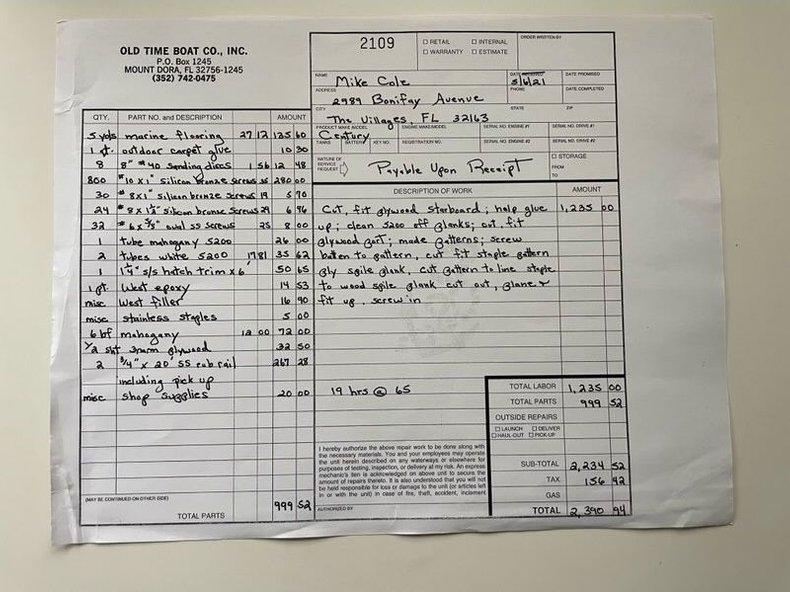 OLD TIME BOAT CO., INC.
P.O. Box 1245
MOUNT DORA, FL 32756-1245
(352) 742-0475
2109
☐ RETAIL ☐ INTERNAL
☐ WARRANTY ☐ ESTIMATE
ORDER WRITTEN BY
NAME Mike Cole
DATE RECEIVED 5/6/21
DATE PROMISED
ADDRESS 2989 Bonifay Avenue
PHONE
DATE COMPLETED
CITY The Villages, FL 32163
STATE
ZIP
PRODUCT MAKE/MODEL Century
ENGINE MAKE/MODEL
SERIAL NO. ENGINE #1
SERIAL NO. DRIVE #1
TANKS BATTERY KEY NO. REGISTRATION NO. SERIAL NO. ENGINE #2 SERIAL NO. DRIVE #2
NATURE OF SERVICE REQUEST Payable Upon Receipt
☐ STORAGE
FROM
TO
QTY. PART NO. and DESCRIPTION AMOUNT
5 yds marine flooring 27 12 135 60
1 qt. outdoor carpet glue 10 30
8 8" #40 sanding discs 1 56 12 48
800 #10 x 1" silicon bronze screws 35 280 00
30 #8 x 1" silicon bronze screws 19 5 70
24 #8 x 1 1/2" silicon bronze screws 29 6 96
32 #6 x 5/8" oval ss screws 25 8 00
1 tube mahogany 5200 26 00
2 tubes white 5200 17 81 35 62
1 1 1/4" s/s hatch trim x 6' 50 65
1 pt. West epoxy 14 53
misc West filler 16 90
misc stainless staples 5 00
6 bf mahogany 12 00 72 00
1/2 sht 3mm plywood 32 50
2 3/4" x 20' SS rub rail 267 28
including pick up
misc shop supplies 20 00
(MAY BE CONTINUED ON OTHER SIDE)
TOTAL PARTS 999 52
DESCRIPTION OF WORK AMOUNT
Cut, fit plywood starboard; help glue 1,235 00
up; clean 5200 off planks; cut, fit
plywood part; made patterns; screw
batten to pattern, cut fit staple pattern
ply spile plank, cut pattern to line staple
to wood spile plank cut out, plane &
fit up, screw in
19 hrs @ 65
I hereby authorize the above repair work to be done along with
the necessary materials. You and your employees may operate
the unit herein described on any waterways or elsewhere for
purposes of testing, inspection, or delivery at my risk. An express
mechanic's lien is acknowledged on above unit to secure the
amount of repairs thereto. It is also understood that you will
not be held responsible for loss or damage to the unit (or articles left
in or with the unit) in case of fire, theft, accident, inclement
AUTHORIZED BY
TOTAL LABOR 1,235 00
TOTAL PARTS 999 52
OUTSIDE REPAIRS
☐ LAUNCH ☐ DELIVER
☐ HAUL-OUT ☐ PICK-UP
SUB-TOTAL 2,234 52
TAX 156 42
GAS
TOTAL 2,390 94